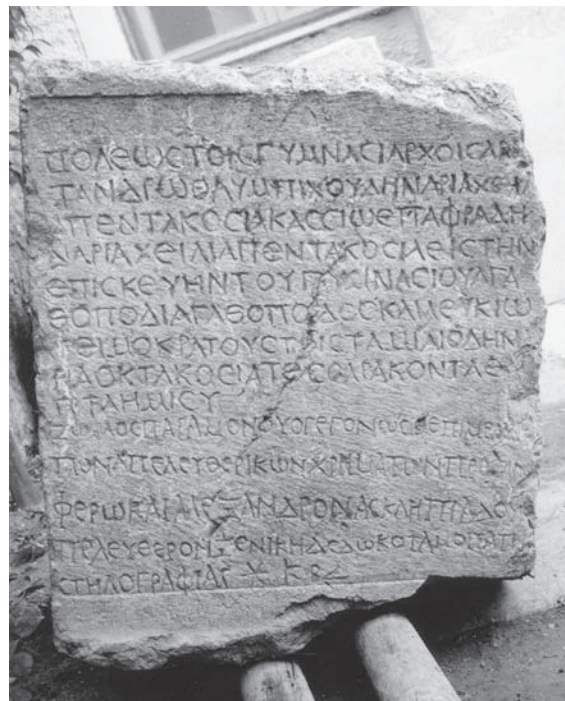 ΠΟΛΕΩΣΤΟΙΣΓΥΜΝΑΣΙΑΡΧΟΙΣΑΝ
ΤΑΝΔΡΩΘΛΥΜΠΙΧΟΥΔΗΝΑΡΙΑΧΕΙΛ
ΑΠΕΝΤΑΚΟΣΙΑΚΑΣΣΙΩΕΠΑΦΡΑΔΗ
ΝΑΡΙΑΧΕΙΛΙΑΠΕΝΤΑΚΟΣΙΑΕΙΣΤΗΝ
ΕΠΙΣΚΕΥΗΝΤΟΥΓΥΜΝΑΣΙΟΥΑΓΑ
ΘΟΠΟΔΙΑΓΑΘΟΠΟΔΟΣΚΑΙΛΕΥΚΙΩ
ΤΕΙΜΟΚΡΑΤΟΥΣΤΟΙΣΤΑΜΙΑΙΟΔΗΝ
ΡΙΑΟΚΤΑΚΟΣΙΑΤΕΣΣΑΡΑΚΟΝΤΑΕ
ΠΤΑΗΜΙΣΥ
ΠΑΡΑΜΟΝΟΥΟΓΕΓΟΝΩΣΕΠΙΜΕΛΗ
ΤΩΝΑΠΕΛΕΥΘΕΡΙΚΩΝΧΡΗΜΑΤΩΝΠΡΟΣ
ΦΕΡΩΚΑΙΑΛΕΞΑΝΔΡΟΝΑΣΚΛΗΠΙΑΔΟΣ
ΠΕΛΕΥΘΕΡΟΝΞΕΝΙΚΗΔΕΔΩΚΟΤΑ
ΣΤΗΛΟΓΡΑΦΙΑΣ